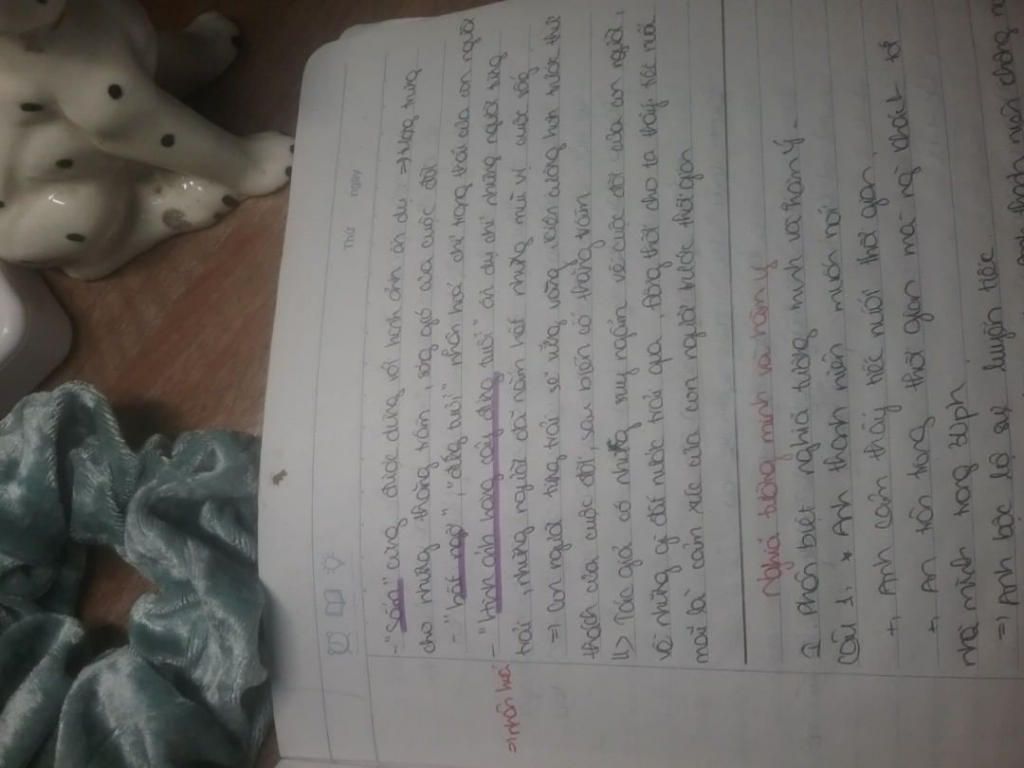 Thứ ngày
- "Sấm" cũng được dùng với hình ảnh ẩn dụ => tượng trưng
cho những thăng trầm, sóng gió của cuộc đời
- "bất ngờ", "đứng tuổi" nhân hoá chỉ trạng thái của con người
- "Hình ảnh hàng cây đứng tuổi" ẩn dụ chỉ những người từng
=> nhân hoá
trải, những người đã nếm hết những mùi vị cuộc sống
=> Con người từng trải sẽ vững vàng, kiên cường hơn trước thử
thách của cuộc đời, sau biến cố thăng trầm
↳ Tác giả có những suy ngẫm về cuộc đời của con người,
về những gì đất nước trải qua, đồng thời cho ta thấy tiếc nuối
mới là cảm xúc của con người trước thời gian
Nghĩa tường minh và hàm ý
I Phân biệt nghĩa tường minh và hàm ý.
Câu 1: * Anh thanh niên muốn nói
+, Anh cảm thấy tiếc nuối thời gian
+, An trân trọng thời gian mà ngỏ
nhà mình trong 30ph
=> Anh bộc lộ sự luyến tiếc
anh thanh niên